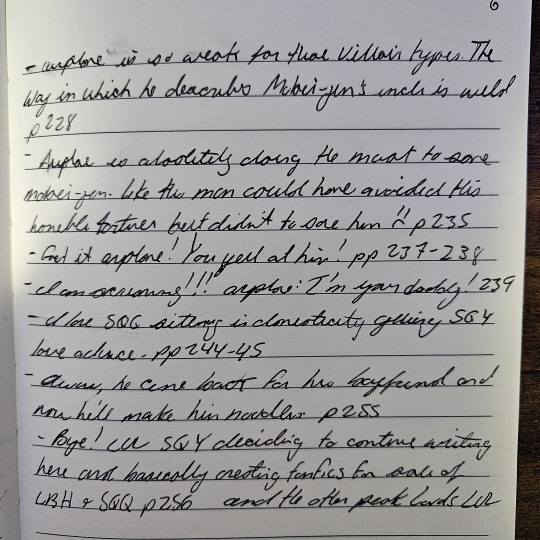 6
- airplane is so weak for those villain types. The
way in which he describes Mobei-jun's uncle is wild
p228
- Airplane is absolutely doing the most to save
mobei-jun. like the man could have avoided this
horrible torture but didn't to save him!! p235
- Get it airplane! You yell at him! pp 237-238
- I am screaming!!! airplane: I'm your daddy! 239
- I love SQQ sitting in domesticity giving SQH
love advice. pp244-45
- awww, he came back for his boyfriend and
now he'll make him noodles p255
- Bye! LOL SQH deciding to continue writing
here and basically creating fanfics for sale of
LBH & SQQ p256 and the other peak lords LOL